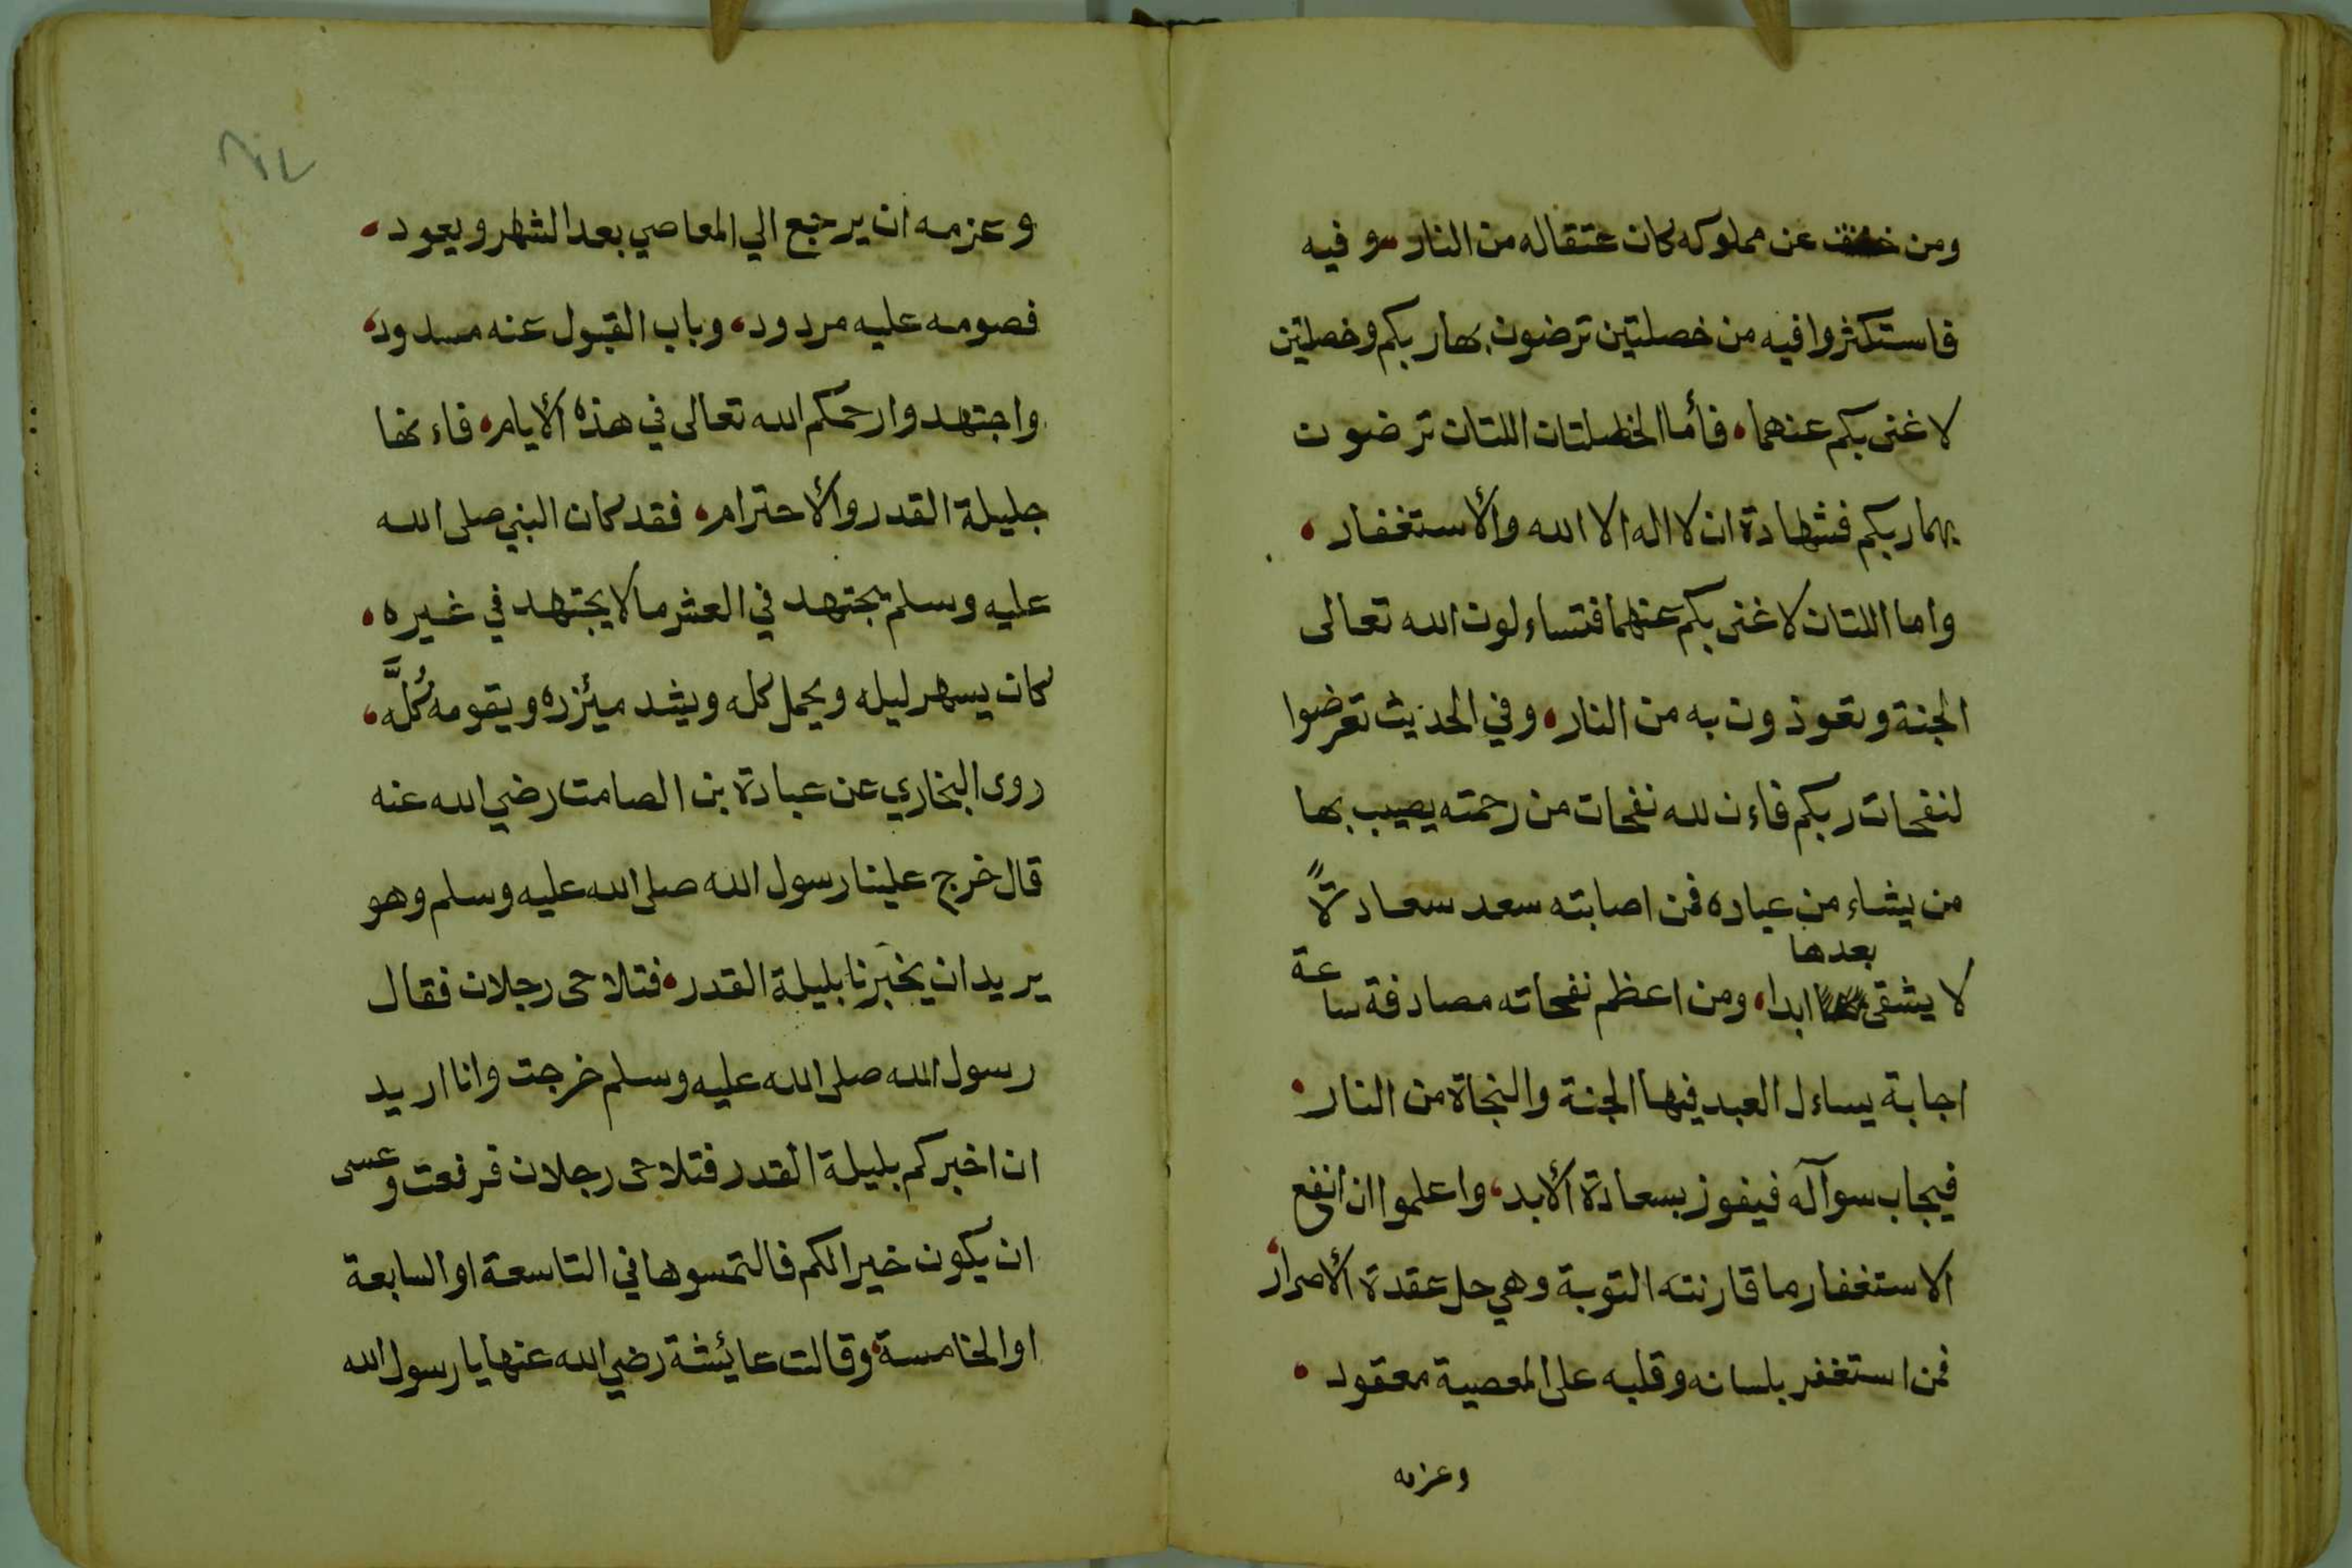 ومن خفف عن مملوكه كان عتقاله من النار، وفيه
فاستكثروا فيه من خصلتين ترضون بها ربكم وخصلتين
لا غنى بكم عنهما، فأما الخصلتان اللتان ترضون
بهما ربكم فشهادة ان لا اله الا الله والأستغفار،
واما اللتان لا غنى بكم عنهما فتساءلون الله تعالى
الجنة وتعوذون به من النار، وفي الحديث تعرضوا
لنفحات ربكم فاءن لله نفحات من رحمته يصيب بها
من يشاء من عباده فمن اصابته سعد سعادةً
بعدها
لا يشقى ابدا، ومن اعظم نفحاته مصادفة ساعة
اجابة يساءل العبد فيها الجنة والنجاة من النار،
فيجاب سوآله فيفوز بسعادة الأبد، واعلموا ان انفع
الاستغفار ما قارنته التوبة وهي حل عقدة الأصرار،
فمن استغفر بلسانه وقلبه على المعصية معقود،
وعزمه
وعزمه ان يرجع الي المعاصي بعد الشهر ويعود،
فصومه عليه مردود، وباب القبول عنه مسدود،
واجتهدوا رحمكم الله تعالى في هذه الأيام، فاءنها
جليلة القدر والأحترام، فقد كان النبي صلى الله
عليه وسلم يجتهد في العشر ما لا يجتهد في غيره،
كان يسهر ليله ويحمل كله ويشد ميئزره ويقومه كُلَّه،
روى البخاري عن عبادة بن الصامت رضي الله عنه
قال خرج علينا رسول الله صلى الله عليه وسلم وهو
يريد ان يخبرنا بليلة القدر، فتلاحى رجلان فقال
رسول الله صلى الله عليه وسلم خرجت وانا اريد
ان اخبركم بليلة القدر فتلاحى رجلان فرفعت وعسى
ان يكون خيرا لكم فالتمسوها في التاسعة او السابعة
او الخامسة، وقالت عائيشة رضي الله عنها يا رسول الله